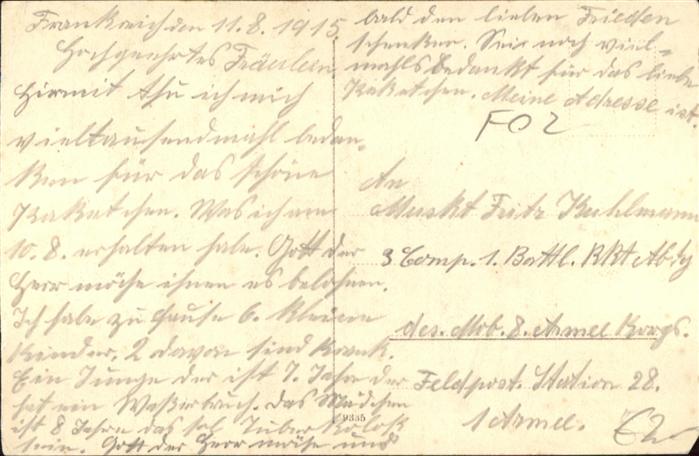 Frankreich den 11.8.1915.
Hochgeehrtes Fräulein
Hirmit thu ich mich
vieltausendmahl bedan-
ken für das schöne
Pakatchen. Was ich am
10. 8. erhalten habe. Gott der
Herr möhe ihnen es belohnen.
Ich habe zu Hause 6. kleine
Kinder. 2 davon sind krank.
Ein Junge der ist 7. Jahr der
hat ein Waßerbruch. das Mädchen
ist 8 Jahre das sol Tuberkolosk
sein. Gott der Herr möhe uns
bald den lieben Frieden
schenken. Sein noch viel-
mahls bedankt für das liebe
Paketchen. Meine Adresse ist.
An
Muskt Fritz Kuhlmann
3 Comp. 1. Battl. Rkt Abtg
des. Mob. 8. Armee Korps.
Feldpost. Station 28.
1 Armee.
9335
62